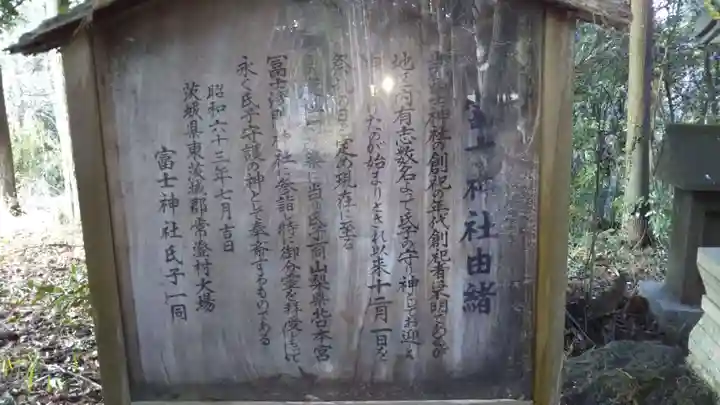 富士神社由緒
当富士神社の創祀の年代創祀者不明であるが
地元有志数名によって氏子の守り神としてお迎え
したのが始まりとされ以来十二月一日を
祭礼の日と定め現在に至る
に当り氏子一同山梨県 本宮
冨士浅間神社に参詣し特に御分霊を拝受して
永く氏子守護の神として奉斎するものである
昭和六十三年七月吉日
茨城県東茨城郡常澄村大場
富士神社氏子一同